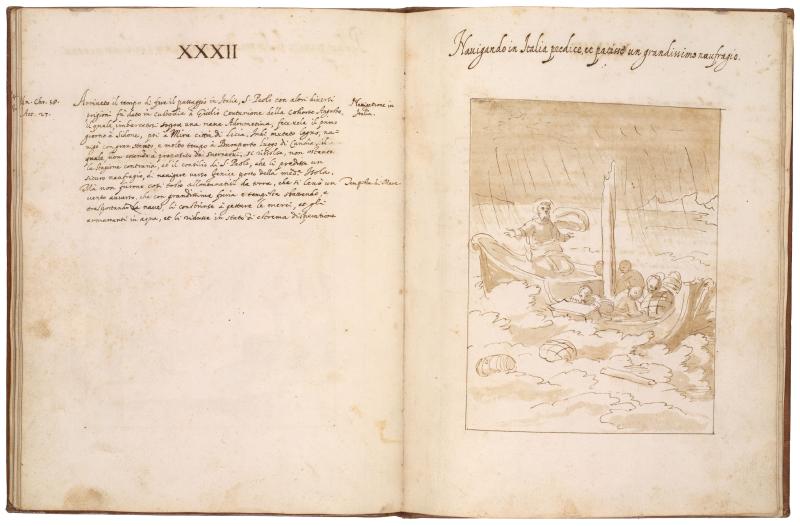 XXXII
An. Chr. 58.
Act. 27.
Arrivato il tempo di fare il passaggio in Italia, S. Paolo con altri diversi
prigioni fu dato in custodia a Giulio Centurione della Cohorte Augusta,
il quale imbarcati sopra una nave Adrumetina, fece vela il primo
giorno à Sidone, poi à Mira città di Licia. Indi mutato legno, na-
vigò con gran stento, e molto tempo à Buonporto luogo di Candia, il
quale, non essendo à proposito da svernarvi, si risolse, non ostante
la stagione contraria, et il consilio di S. Paolo, che li predisse un
sicuro naufragio, di navigare verso Fenice porto della med.ª Isola.
Ma non furono così tosto allontanati da terra, che si levò un
vento avverso, che con grandissima furia e tempesta sbattendo, e
trasportando la nave, li constrinse à gettare le merci, et gli
armamenti in acqua, et li ridusse in stato di estrema disperatione
Navigatione in
Italia.
Tempesta di Mare
Navigando in Italia predice, et patisce un grandissimo naufragio.